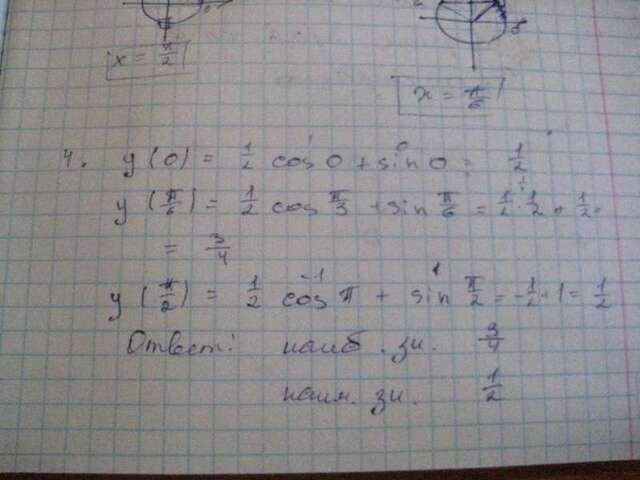 x = π/2
x = π/6
4. y(0) = 1/2 cos 0 + sin 0 = 1/2
y(π/6) = 1/2 cos π/3 + sin π/6 = 1/2 · 1/2 + 1/2 =
= 3/4
y(π/2) = 1/2 cos π + sin π/2 = -1/2 + 1 = 1/2
Ответ: наиб. зн. 3/4
наим. зн. 1/2